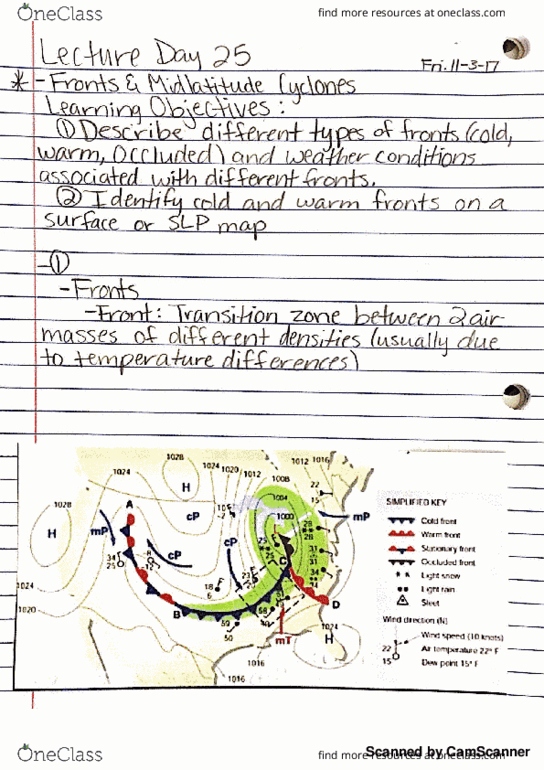 OneClass
find more resources at oneclass.com
Lecture Day 25
Fri. 11-3-17
* - Fronts & Midlatitude Cyclones
Learning Objectives:
① Describe different types of fronts (cold,
warm, Occluded) and weather conditions
associated with different fronts.
② Identify cold and warm fronts on a
surface or SLP map
- ①
- Fronts
- Front: Transition zone between 2 air
masses of different densities (usually due
to temperature differences)
1028
1024
1028
1024 1020 1012
1012 1016
1008
1004
1000
H
A
cP
mP
H
cP
cP
mP
22
15
34
25
18
6
B
C
D
59
50
mT
H
1024
1024
1020
1016
1016
SIMPLIFIED KEY
Cold front
Warm front
Stationary front
Occluded front
Light snow
Light rain
Sleet
Wind direction (N)
Wind speed (10 knots)
22 Air temperature 22° F
15 Dew point 15° F
Scanned by CamScanner
OneClass
find more resources at oneclass.com